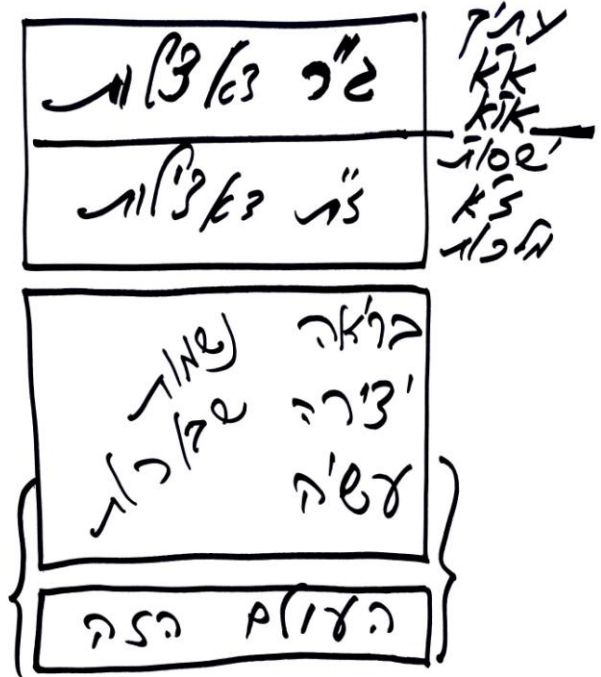 ג"ר דאצילות
ז"ת דאצילות
עתיק
א"א
או"א
ישסו"ת
ז"א
מלכות
בריאה
יצירה
עשיה
נשמות
שבורות
העולם הזה